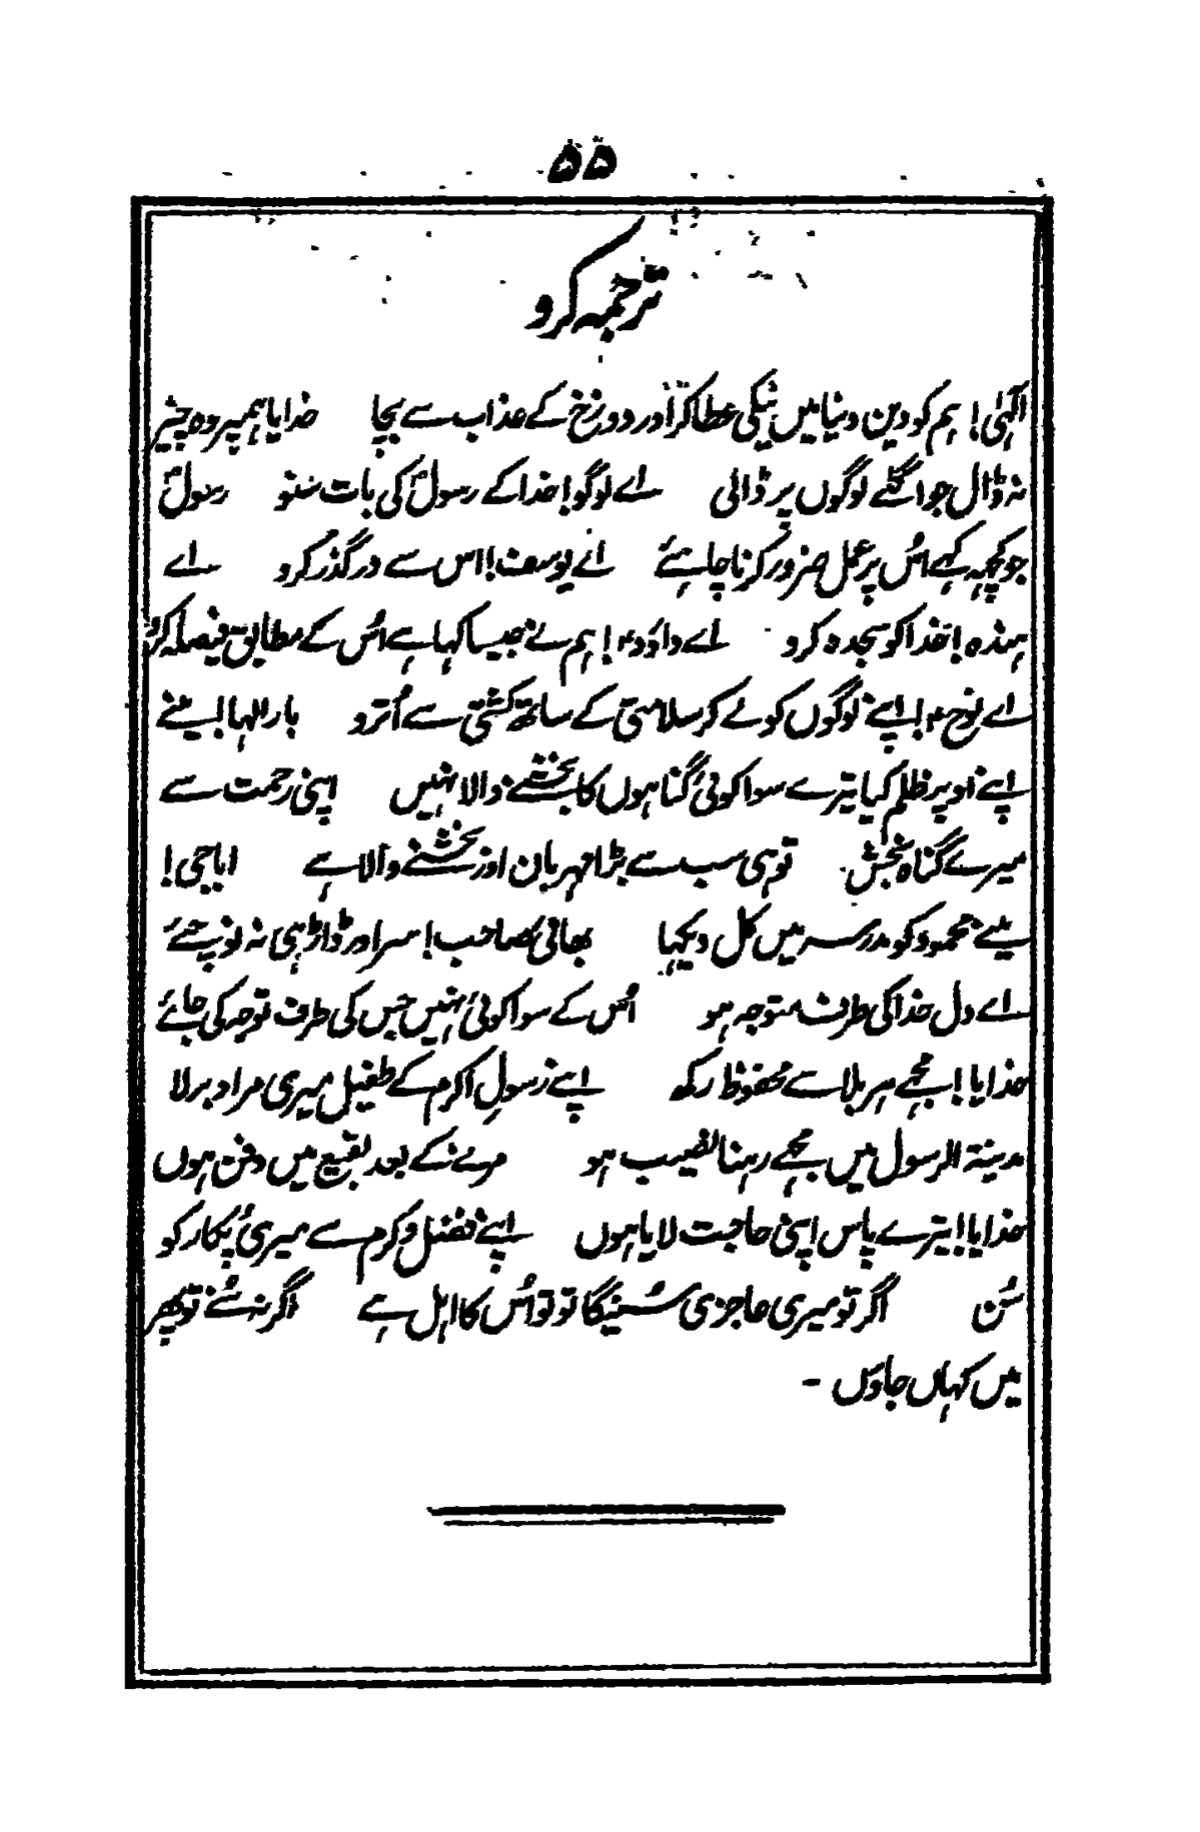 ۵۵
ترجمہ کرو
الٰہی! ہم کو دین و دنیا میں نیکی عطا کر اور دوزخ کے عذاب سے بچا خدایا ہمپر وہ چیز
نہ ڈال جو اگلے لوگوں پر ڈالی اے لوگو! خدا کے رسولؐ کی بات سنو رسولؐ
جو کچھ کہے اُس پر عمل ضرور کرنا چاہئے اے یوسف! اس سے درگذر کرو اے
ہندہ! خدا کو سجدہ کرو اے داؤد؏! ہم نے جیسا کہا ہے اُس کے مطابق فیصلہ کرو
اے نوح؏! اپنے لوگوں کو لے کر سلامتی کے ساتھ کشتی سے اُترو بار الٰہا! مینے
اپنے اوپر ظلم کیا تیرے سوا کوئی گناہوں کا بخشنے والا نہیں اپنی رحمت سے
میرے گناہ بخش تو ہی سب سے بڑا مہربان اور بخشنے والا ہے اباجی!
مینے محمود کو مدرسہ میں کل دیکہا بھائی صاحب! سر اور ڈاڑہی نہ نوچئے
اے دل خدا کی طرف متوجہ ہو اُس کے سوا کوئی نہیں جس کی طرف توجہ کی جائے
خدایا! مجھے ہر بلا سے محفوظ رکھ اپنے رسولِ اکرم کے طفیل میری مراد برلا
مدینۃ الرسول میں مجھے رہنا نصیب ہو مرنے کے بعد بقیع میں دفن ہوں
خدایا! تیرے پاس اپنی حاجت لایا ہوں اپنے فضل و کرم سے میری پکار کو
سُن اگر تو میری عاجزی سُنیگا تو تو اُس کا اہل ہے اگر نہ سُنے تو پھر
میں کہاں جاؤں -